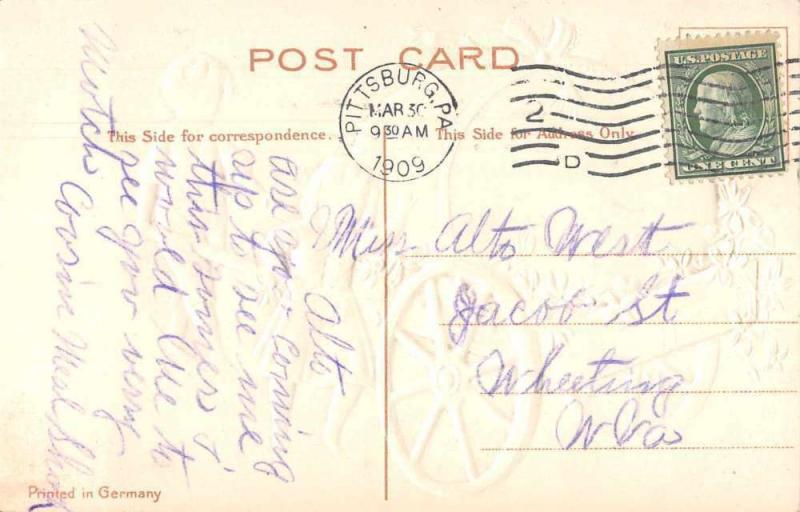 POST CARD
This Side for correspondence.
This Side for Address Only
PITTSBURG, PA
MAR 30
9 30 AM
1909
2
D
U.S. POSTAGE
ONE CENT
Miss Alto West
Jacob St
Wheeling
W Va
Alto
are you coming
up to see me
this
would like to
see you very
Cousin
Printed in Germany